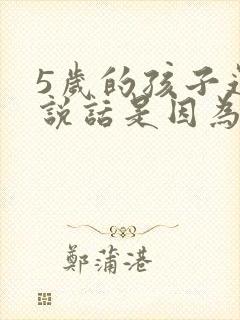 5歲的孩子
說話是因為
鄭蒲港